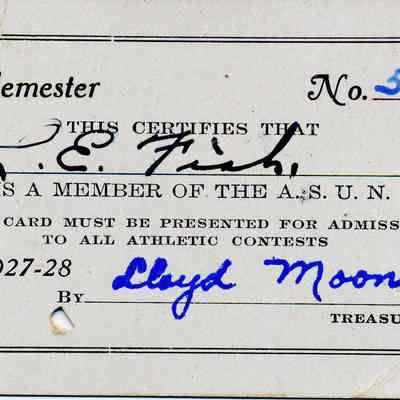 emester No. 5
THIS CERTIFIES THAT
. E. Fish,
IS A MEMBER OF THE A. S. U. N.
CARD MUST BE PRESENTED FOR ADMISS
TO ALL ATHLETIC CONTESTS
927-28 Lloyd Moon
By
TREASU